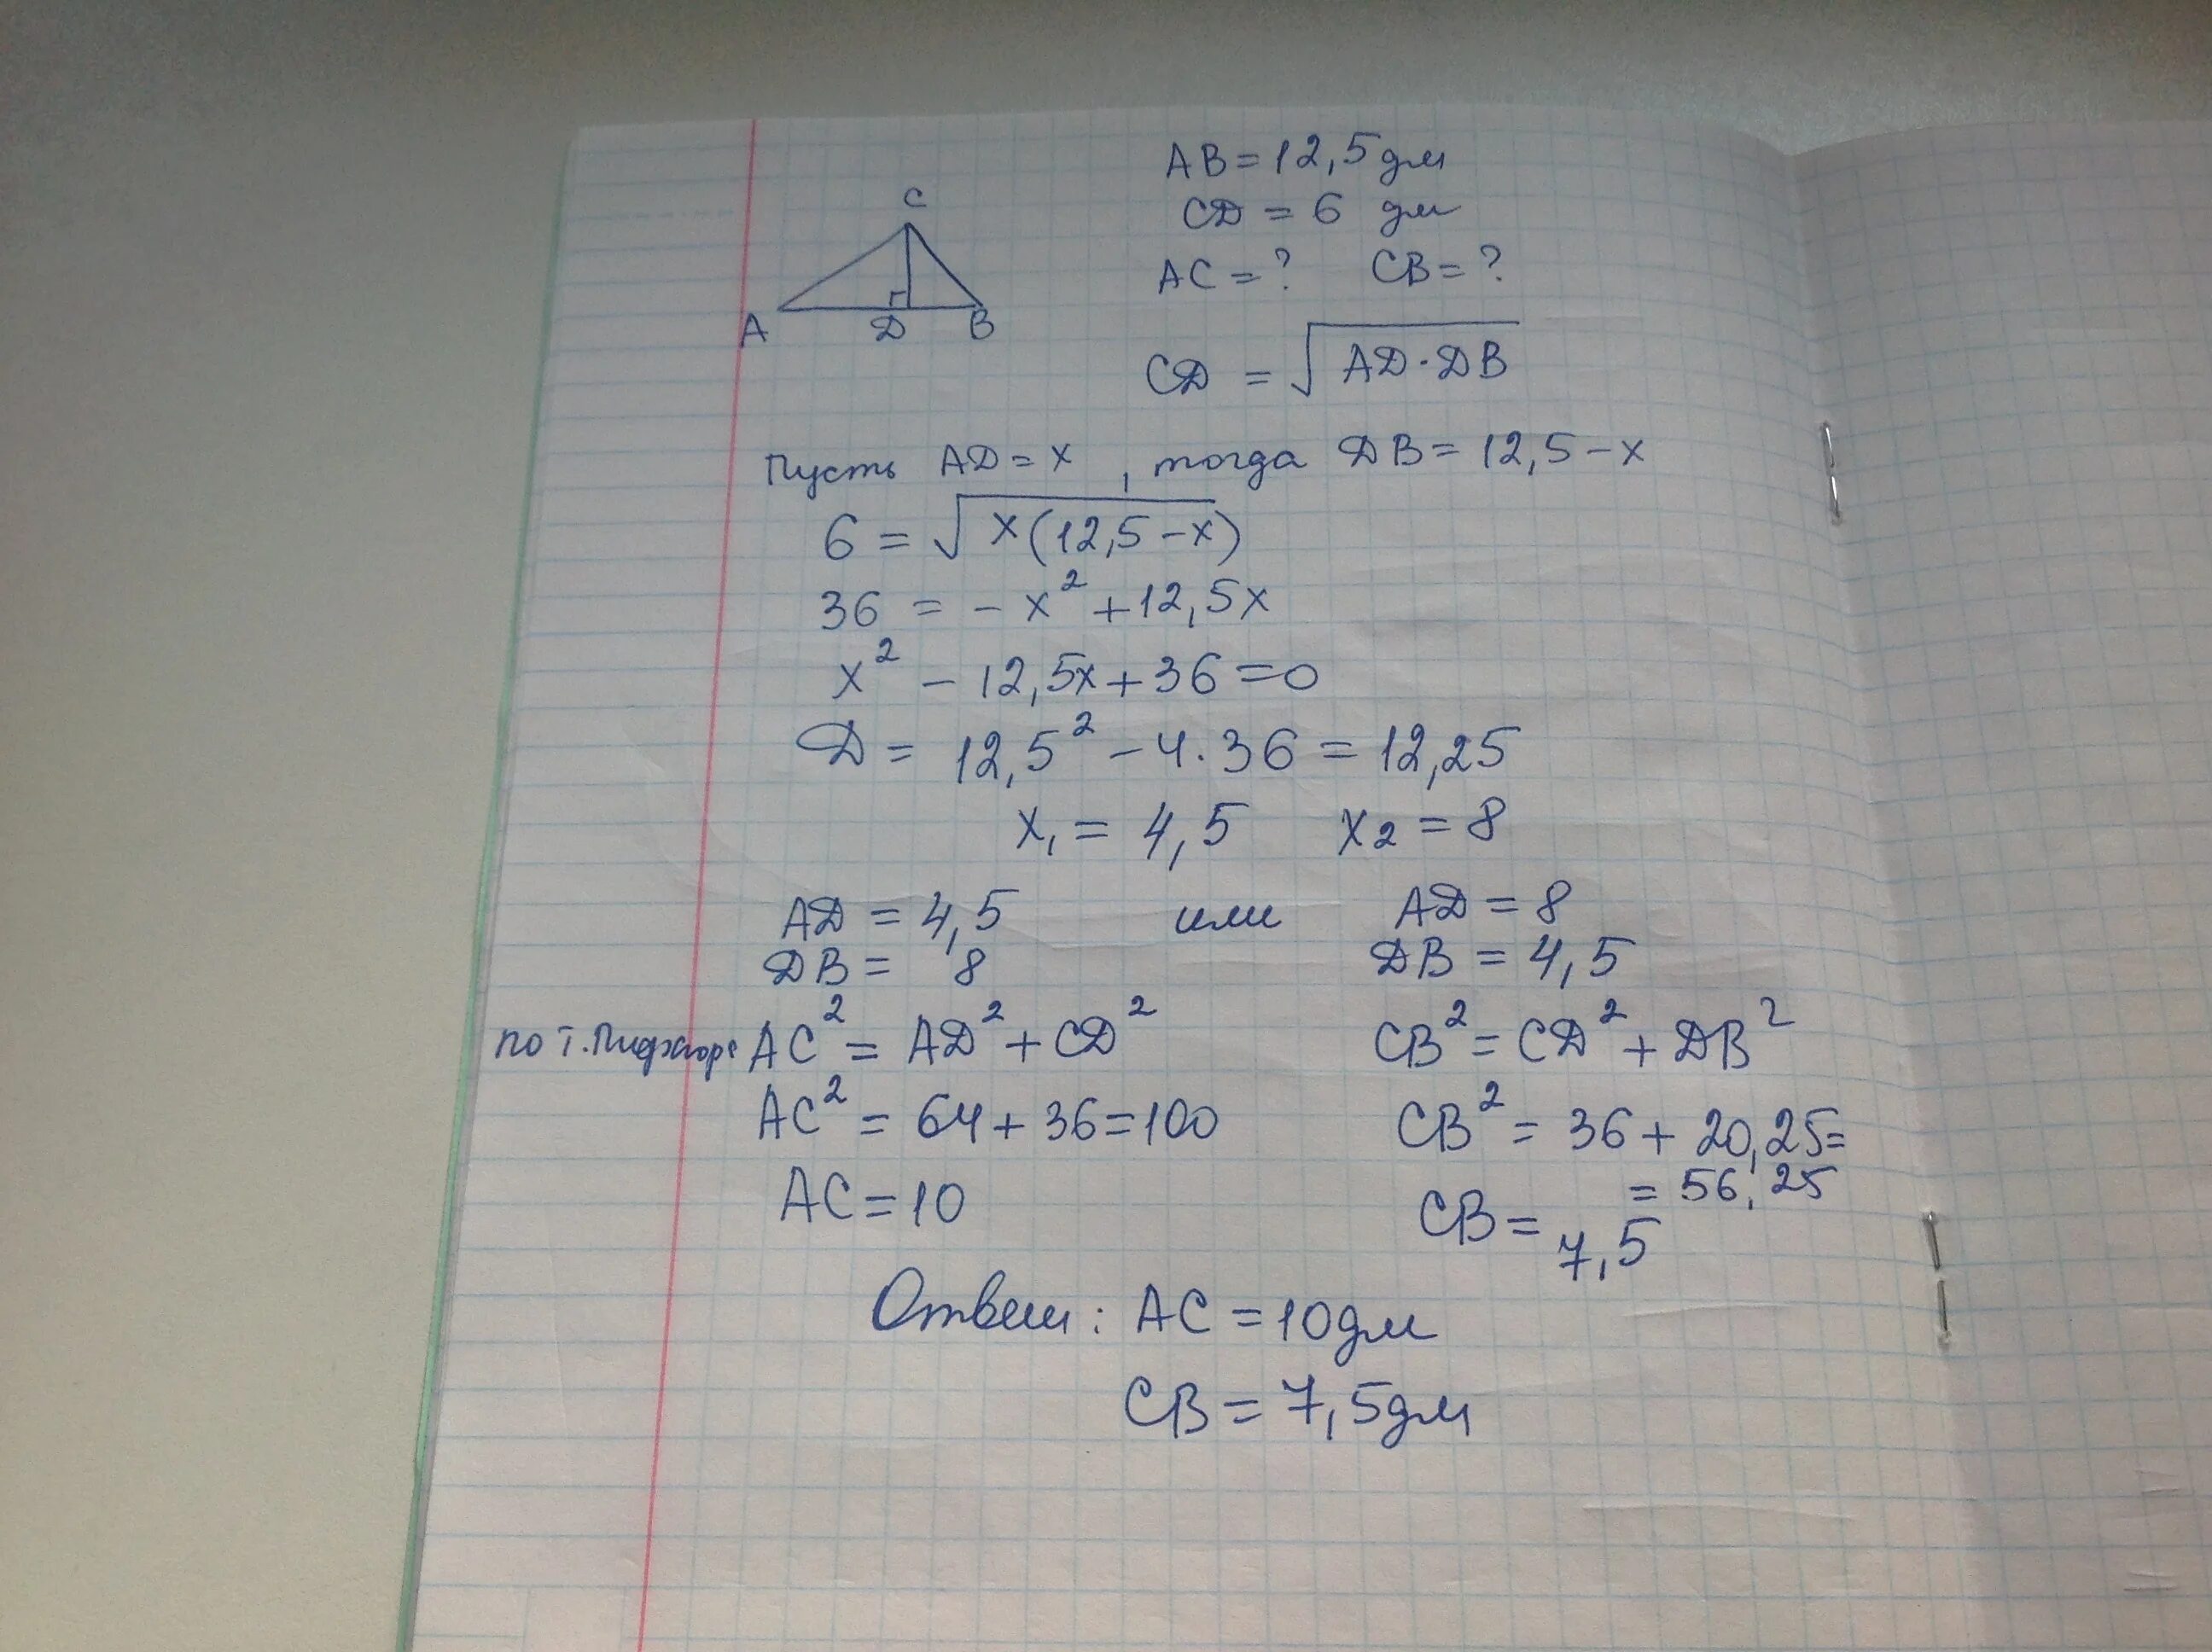 AB = 12,5 дм
C
CD = 6 дм
AC = ? CB = ?
A D B
CD = √AD·DB
Пусть AD = x , тогда DB = 12,5 - x
6 = √x(12,5 - x)
36 = - x² + 12,5x
x² - 12,5x + 36 = 0
D = 12,5² - 4·36 = 12,25
x₁ = 4,5 x₂ = 8
AD = 4,5 или AD = 8
DB = 8 DB = 4,5
по т. Пифагора AC² = AD² + CD² CB² = CD² + DB²
AC² = 64 + 36 = 100 CB² = 36 + 20,25 =
= 56,25
AC = 10 CB = 7,5
Ответ : AC = 10 дм
CB = 7,5 дм